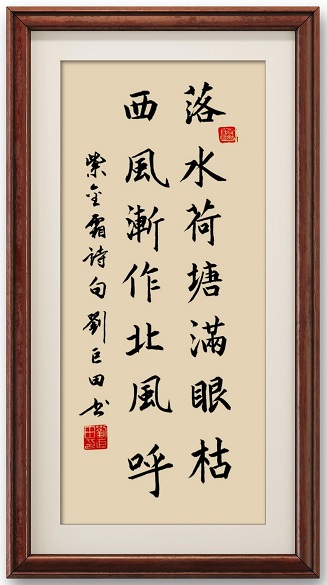 落水荷塘滿眼枯
西風漸作北風呼
紫金霜詩句劉巨田书